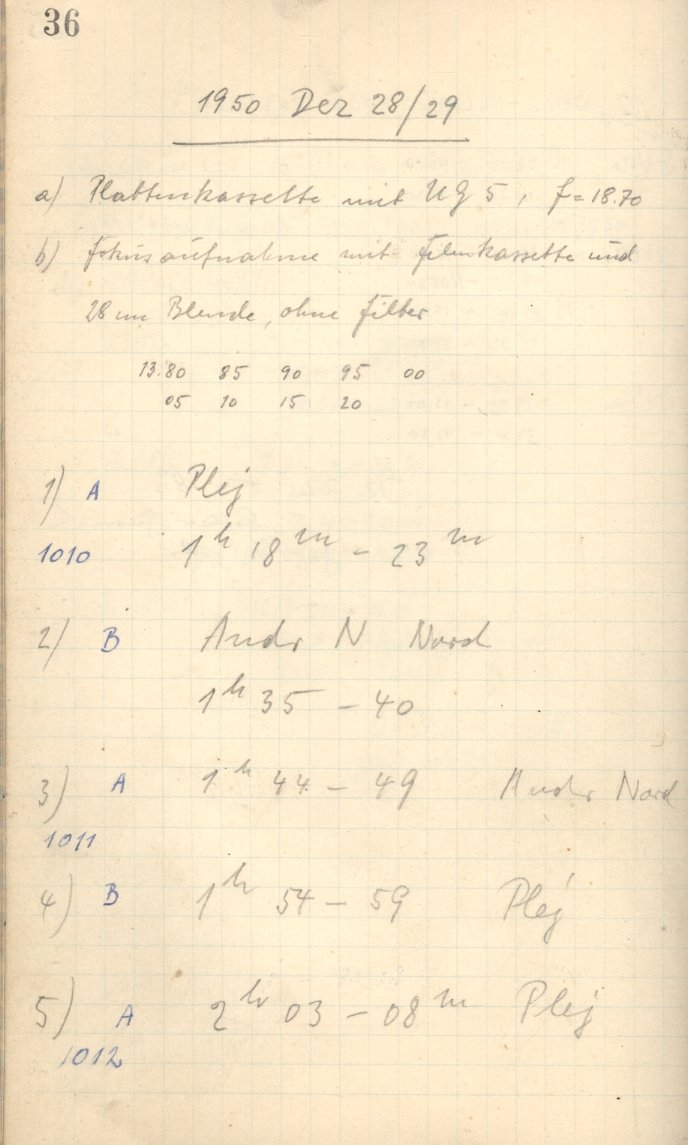 36
1950 Dez 28/29
a) Plattenkassette mit UG 5, f = 18.70
b) Fokusaufnahme mit Filmkassette und
28 cm Blende, ohne Filter
13.80 85 90 95 00
05 10 15 20
1) A Plej
1010 1h 18m - 23m
2) B Andr N Nord
1h 35 - 40
3) A 1h 44 - 49 Andr Nord
1011
4) B 1h 54 - 59 Plej
5) A 2h 03 - 08m Plej
1012